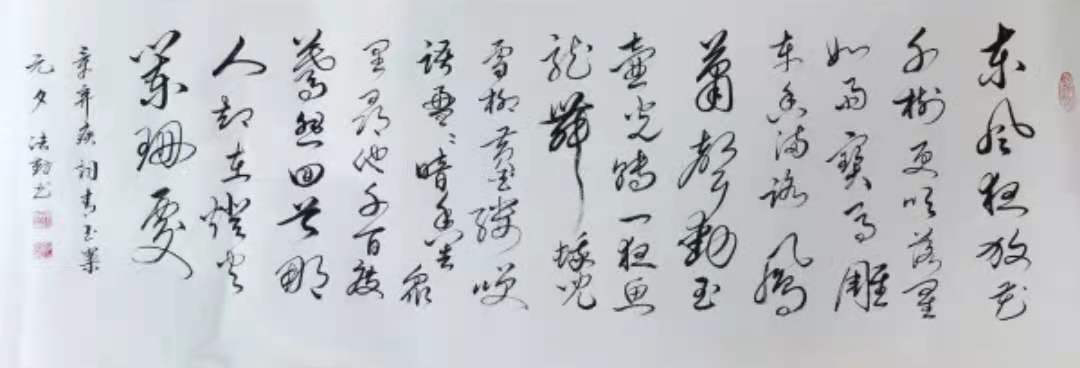 东风夜放花
千树更吹落星
如雨寶马雕
车香满路凤
萧聲動玉
壶光转一夜鱼
龙舞蛾儿
雪柳黄金缕笑
语盈盈暗香去众
里寻他千百度
蓦然回首那
人却在燈火
阑珊处
辛弃疾词青玉案
元夕 法勤书